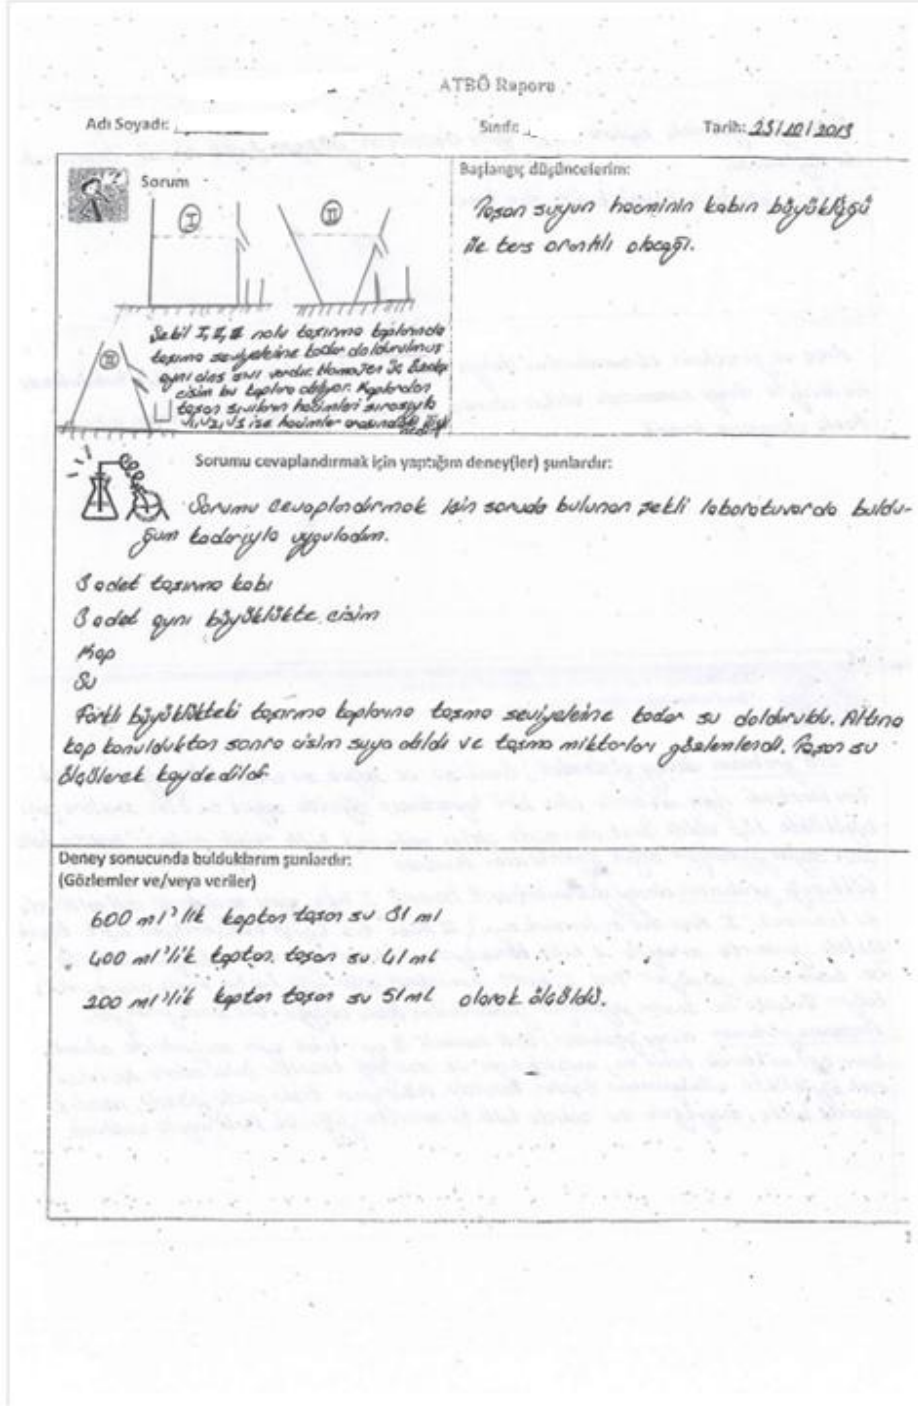 ATBÖ Raporu
Adı Soyadı:
Sınıfı:
Tarih: 25/10/2013
Sorum
I
II
III
Şekil I, II, III nolu taşırma kaplarında
taşma seviyelerine kadar doldurulmuş
aynı cins sıvı vardır. Homojen üç
cisim bu kaplara atılıyor. Kaplardan
taşan sıvıların hacimleri sırasıyla
V1, V2, V3 ise hacimler arasındaki
Başlangıç düşüncelerim:
Taşan suyun hacminin kabın büyüklüğü
ile ters orantılı olacağı.
Sorumu cevaplandırmak için yaptığım deney(ler) şunlardır:
Sorumu cevaplandırmak için soruda bulunan şekli laboratuvarda buldu-
ğum kadarıyla uyguladım.
3 adet taşırma kabı
3 adet aynı büyüklükte cisim
Kap
Su
Farklı büyüklükteki taşırma kaplarına taşma seviyelerine kadar su dolduruldu. Altına
kap konulduktan sonra cisim suya atıldı ve taşma miktarları gözlemlendi. Taşan su
ölçülerek kaydedildi.
Deney sonucunda bulduklarım şunlardır:
(Gözlemler ve/veya veriler)
600 ml'lik kaptan taşan su 31 ml
400 ml'lik kaptan taşan su 41 ml
200 ml'lik kaptan taşan su 51 ml olarak ölçüldü.